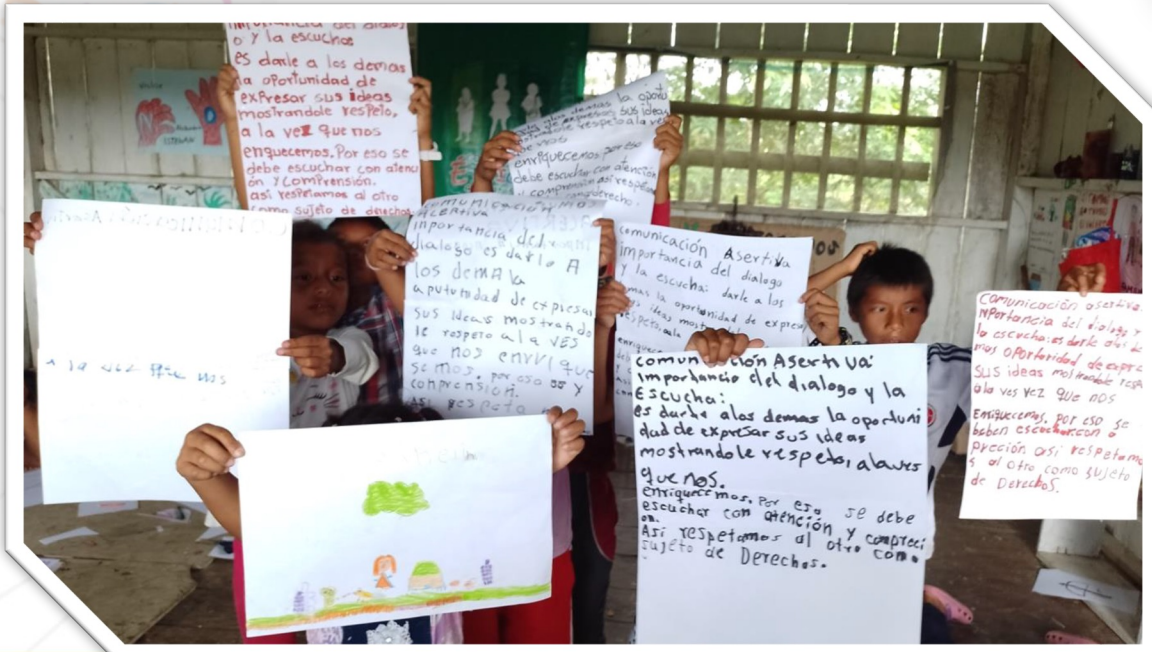 o y la escucha
es darle a los demas
la oportunidad de
expresar sus ideas
mostrandole respeto,
a la vez que nos
enquecemos. Por eso se
debe escuchar con atenci
ón y comprensión.
así respetamos al otro
como sujeto de derechos
demas la oportu
sus ideas
respeto a la vez
enriquecemos por eso
debe escuchar con atención
y comprensión así respeta
derecho.
a la vez que nos
comunicación
Acertiva
importancia del
dialogo es darlo A
los dema la
expresar
sus ideas mostrando
le respeto a la ves
que nos
semos. por eso es y
conprension.
Asi respeto
comunicación Asertiva
importancia del dialogo
y la escucha: darle a los
emas la oportunidad de expresa
ideas
respeto, ala
enrique
comun ción Asertiva:
importancia del dialogo y la
Escucha:
es darle alos demas la oportuni
dad de expresar sus ideas
mostrandole respeto, alaves
que nos.
enriquecemos. Por eso se debe
escuchar con atención y compreci
on.
Así respetamos al otro como
sujeto de Derechos.
Comunicación asertiva
mportancia del dialogo y
la escucha: es darle
mas oportoridad de expre
sus ideas mostrandole resp
ala ves vez que nos
Enriquecemos, por eso se
beben escuchar.con a
preción así respetamo
s al otro como sujeto
de Derechos.